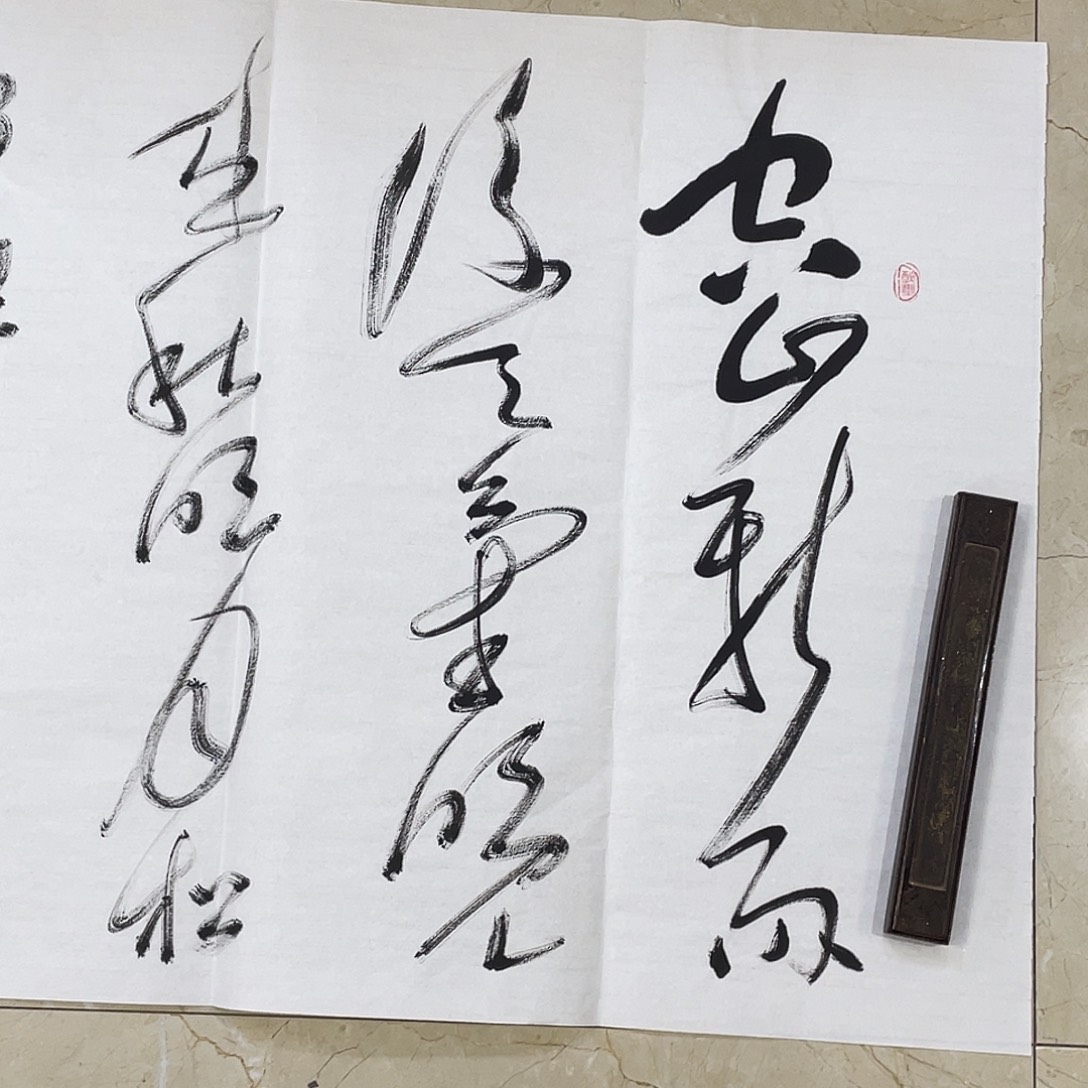 空山新雨
後天氣晚
來秋明月松